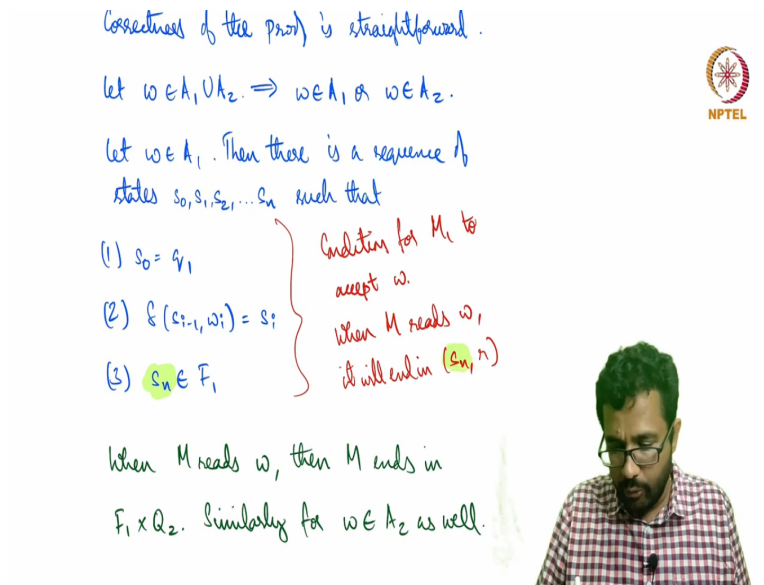 Correctness of the proof is straightforward.
Let w ∈ A₁ ∪ A₂ ⟹ w ∈ A₁ or w ∈ A₂.
Let w ∈ A₁. Then there is a sequence of
states s₀, s₁, s₂, ... sₙ such that
(1) s₀ = q₁
(2) δ(sᵢ₋₁, wᵢ) = sᵢ
(3) sₙ ∈ F₁
Condition for M₁ to
accept w.
When M reads w,
it will end in (sₙ, r)
When M reads w, then M ends in
F₁ × Q₂. Similarly for w ∈ A₂ as well.
NPTEL